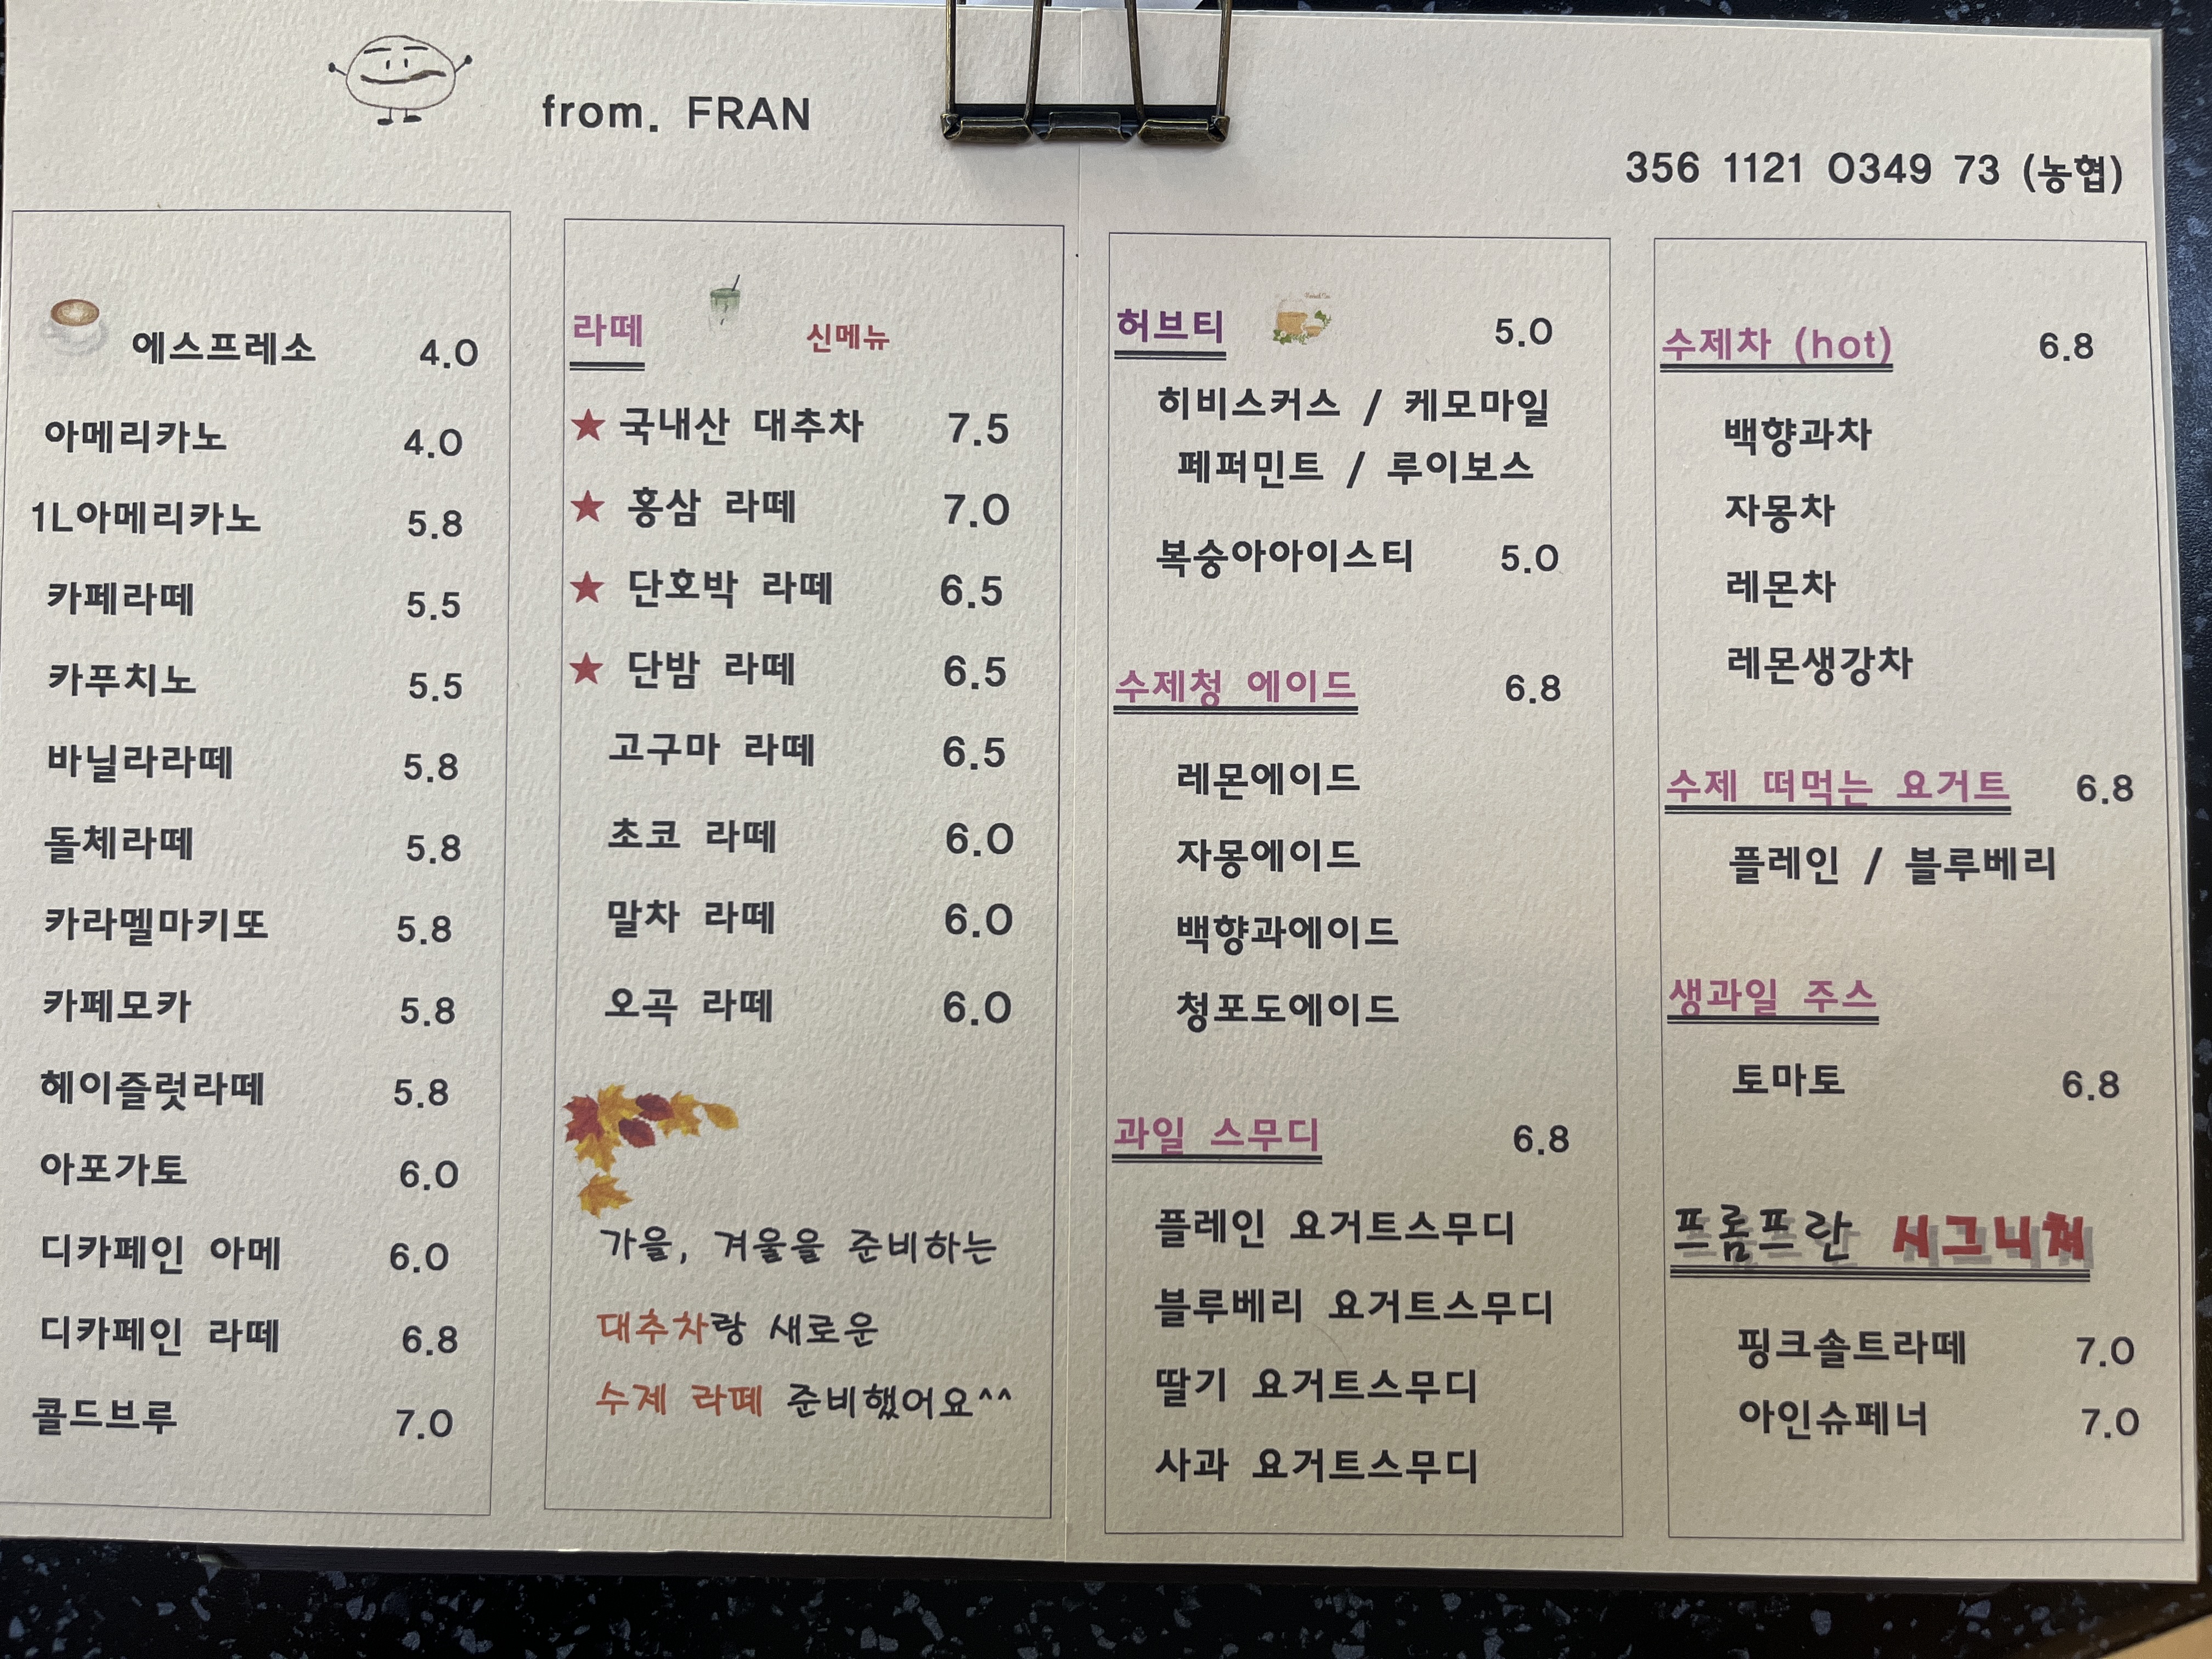 from. FRAN
356 1121 0349 73 (농협)
에스프레소 4.0
아메리카노 4.0
1L아메리카노 5.8
카페라떼 5.5
카푸치노 5.5
바닐라라떼 5.8
돌체라떼 5.8
카라멜마키또 5.8
카페모카 5.8
헤이즐럿라떼 5.8
아포가토 6.0
디카페인 아메 6.0
디카페인 라떼 6.8
콜드브루 7.0
라떼 신메뉴
★ 국내산 대추차 7.5
★ 홍삼 라떼 7.0
★ 단호박 라떼 6.5
★ 단밤 라떼 6.5
고구마 라떼 6.5
초코 라떼 6.0
말차 라떼 6.0
오곡 라떼 6.0
가을, 겨울을 준비하는
대추차랑 새로운
수제 라떼 준비했어요^^
허브티 5.0
히비스커스 / 케모마일
페퍼민트 / 루이보스
복숭아아이스티 5.0
수제청 에이드 6.8
레몬에이드
자몽에이드
백향과에이드
청포도에이드
과일 스무디 6.8
플레인 요거트스무디
블루베리 요거트스무디
딸기 요거트스무디
사과 요거트스무디
수제차 (hot) 6.8
백향과차
자몽차
레몬차
레몬생강차
수제 떠먹는 요거트 6.8
플레인 / 블루베리
생과일 주스
토마토 6.8
프롬프란 시그니쳐
핑크솔트라떼 7.0
아인슈페너 7.0